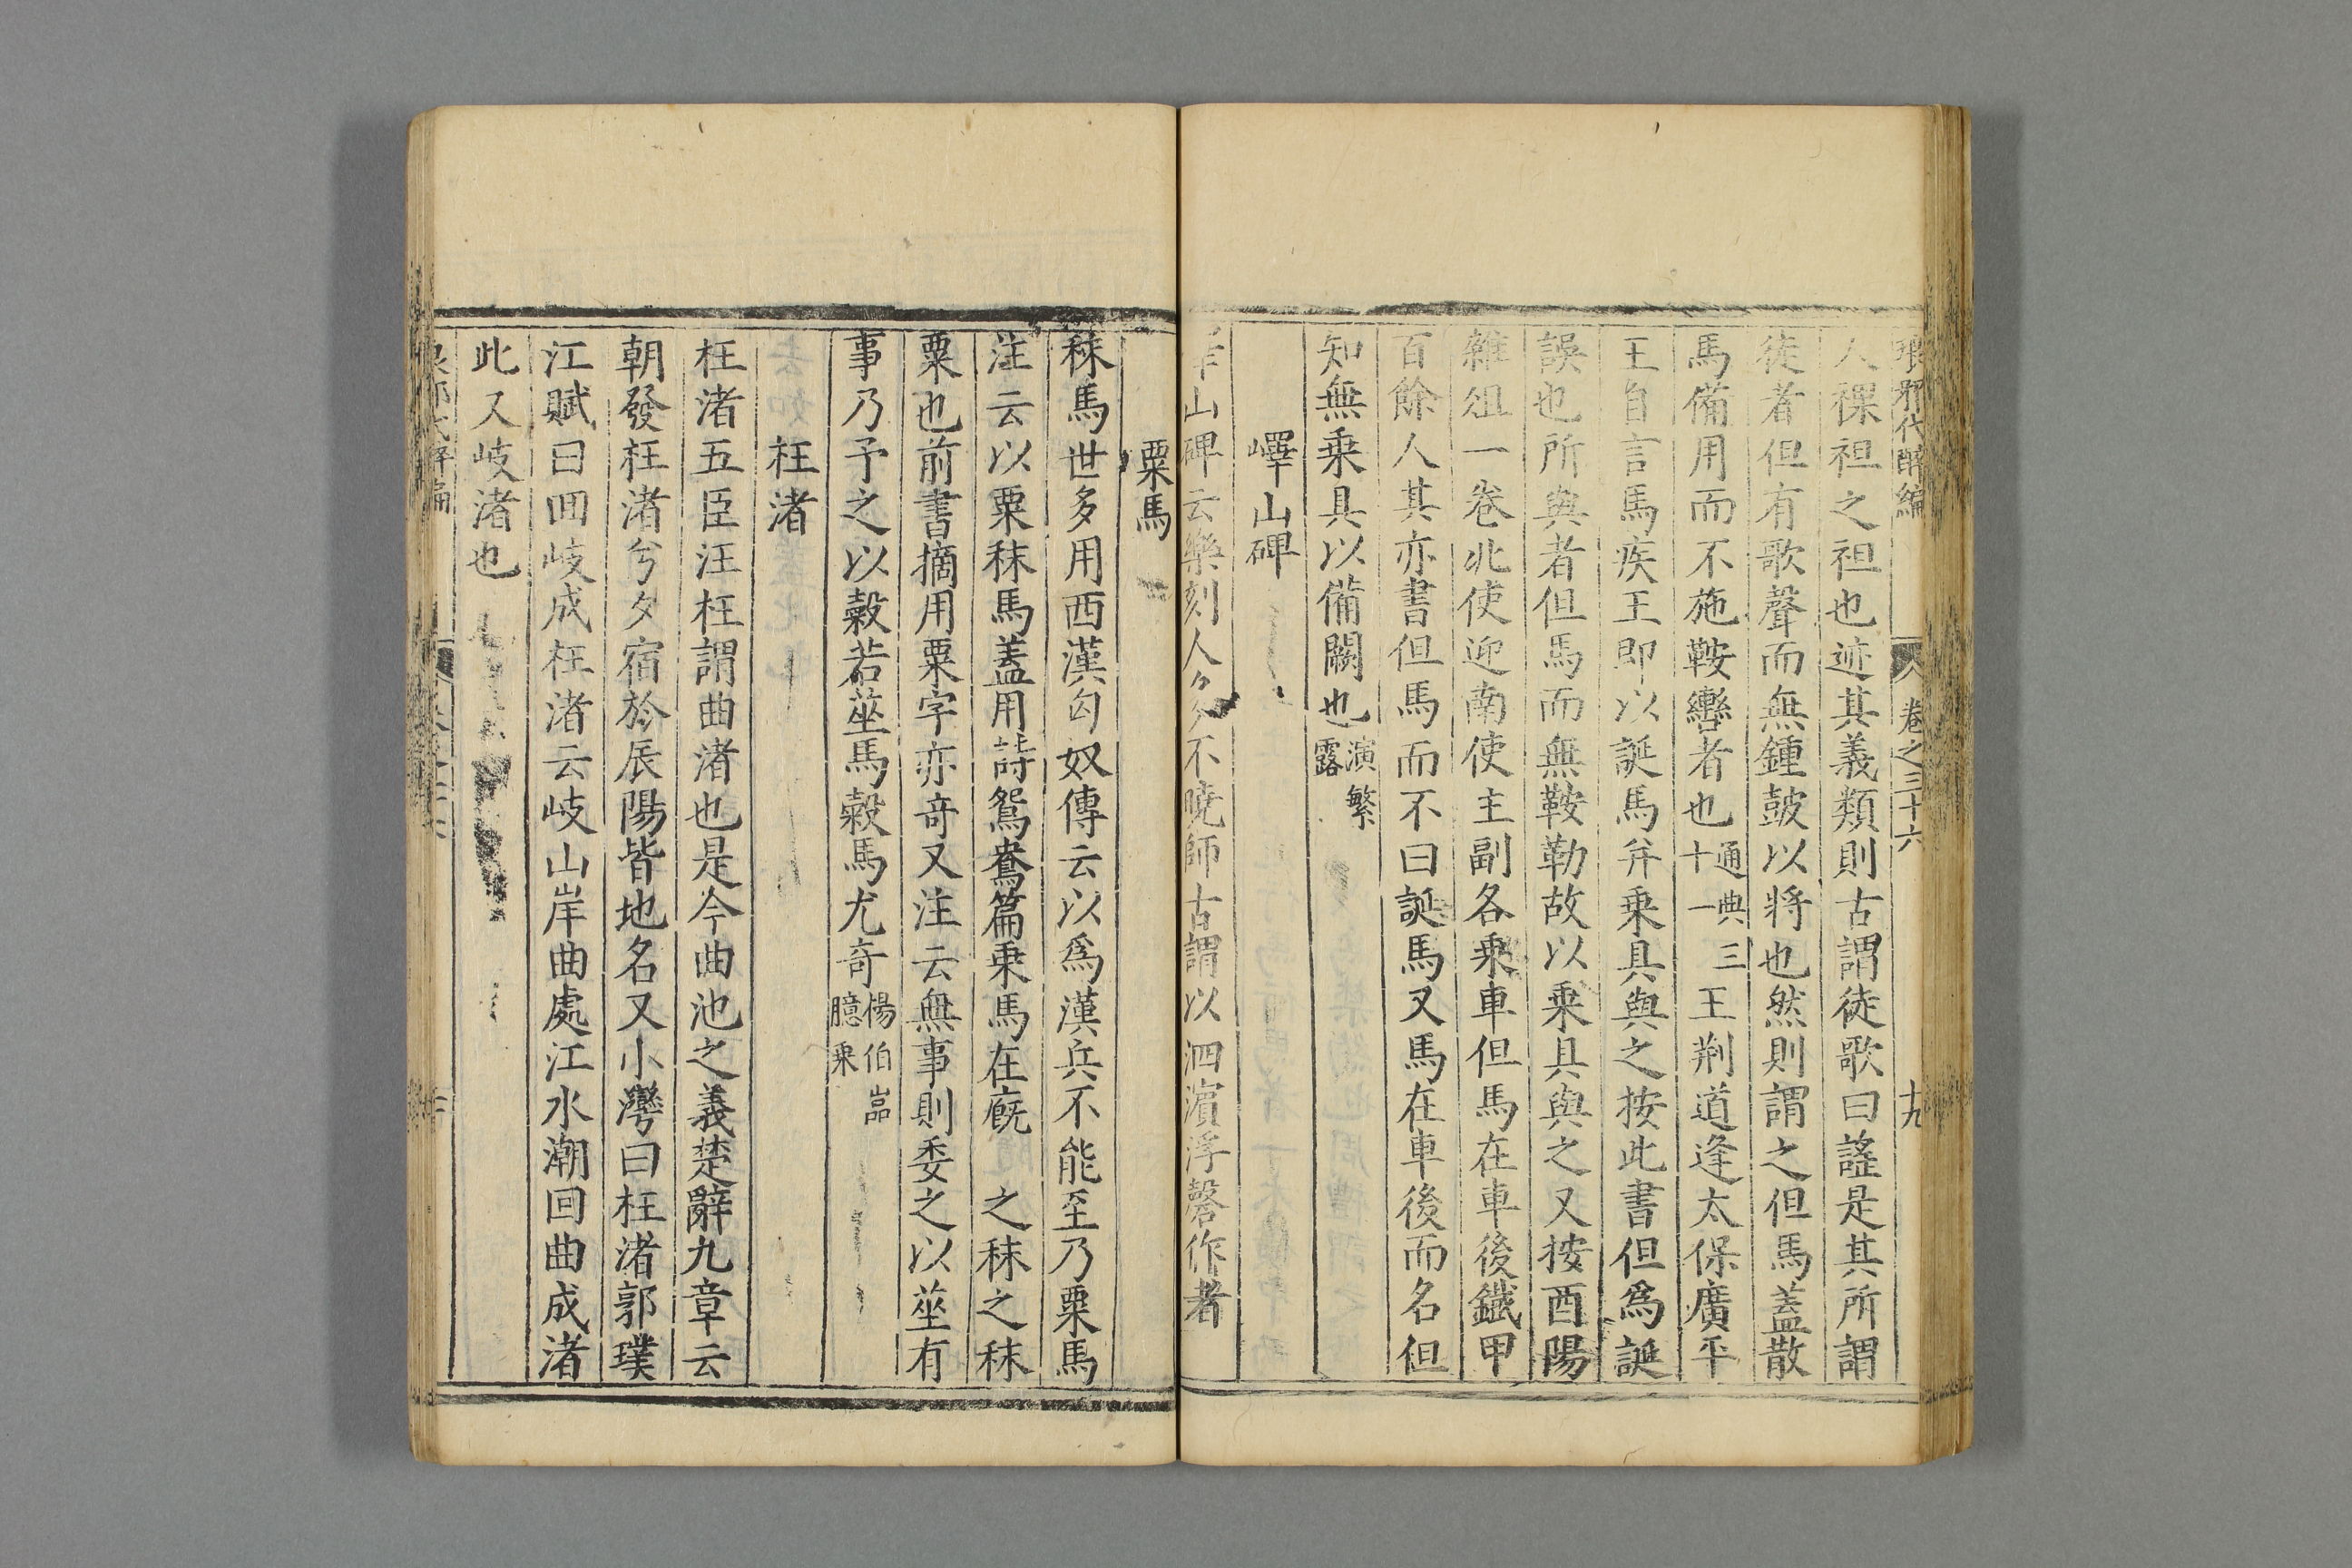 琅邪代醉編 卷之三十六 十九
人裸袒之袒也迹其義類則古謂徒歌曰謠是其所謂
徒者但有歌聲而無鍾鼓以將也然則謂之但馬蓋散
馬備用而不施鞍轡者也通典三十一王荆道逢太保廣平
王自言馬疾王即以誕馬并乗具與之按此書但爲誕
誤也所與者但馬而無鞍勒故以乗具與之又按酉陽
雜俎一卷北使迎南使主副各乘車但馬在車後鐵甲
百餘人其亦書但馬而不曰誕馬又馬在車後而名但
知無乗具以備闕也演繁露
嶧山碑
山碑云樂刻人多不曉師古謂以泗濵浮磬作者
粟馬
秣馬世多用西漢匈奴傳云以爲漢兵不能至乃粟馬
注云以粟秣馬蓋用詩鴛鴦篇乗馬在廐 之秣之秣
粟也前書摘用粟字亦奇又注云無事則委之以莝有
事乃予之以穀若莝馬穀馬尤奇楊伯嵓臆乗
枉渚
枉渚五臣汪枉謂曲渚也是今曲池之義楚辭九章云
朝發枉渚兮夕宿於辰陽皆地名又小灣曰枉渚郭璞
江賦曰囬岐成枉渚云岐山岸曲處江水潮回曲成渚
此又岐渚也